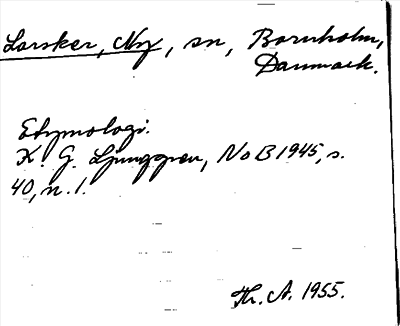 Larsker, Ny, sn, Bornholm,
Danmark.
Etymologi.
K. G. Ljunggren, NoB 1945, s.
40, n. 1.
Th. A. 1955.